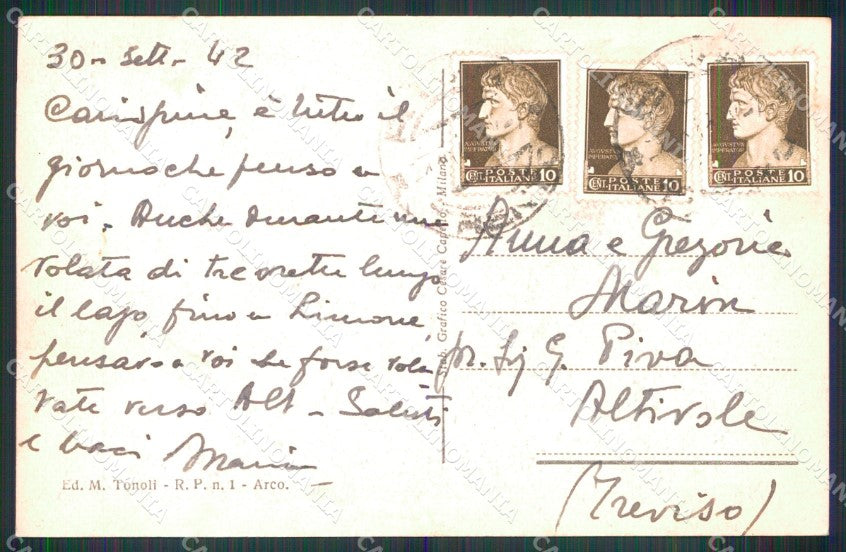 30 - Sett - 42
Carissime, è tutto il
giorno che penso a
voi. Anche durante una
volata di tre ore tu lungo
il lago, fino a Limone,
pensavo a voi che forse vola
vate verso Alt - Saluti
e baci Maria
Ed. M. Tonoli - R. P. n. 1 - Arco.
Stab. Grafico Cesare Capriolo - Milano
AUGUSTVS IMPERATOR
CENT. POSTE ITALIANE 10
AUGUSTVS IMPERATOR
CENT. POSTE ITALIANE 10
CENT. POSTE ITALIANE 10
Anna e Gregorio
Marin
pr. Sig G. Piva
Altivole
(Treviso)
CARTOLINOMANIA